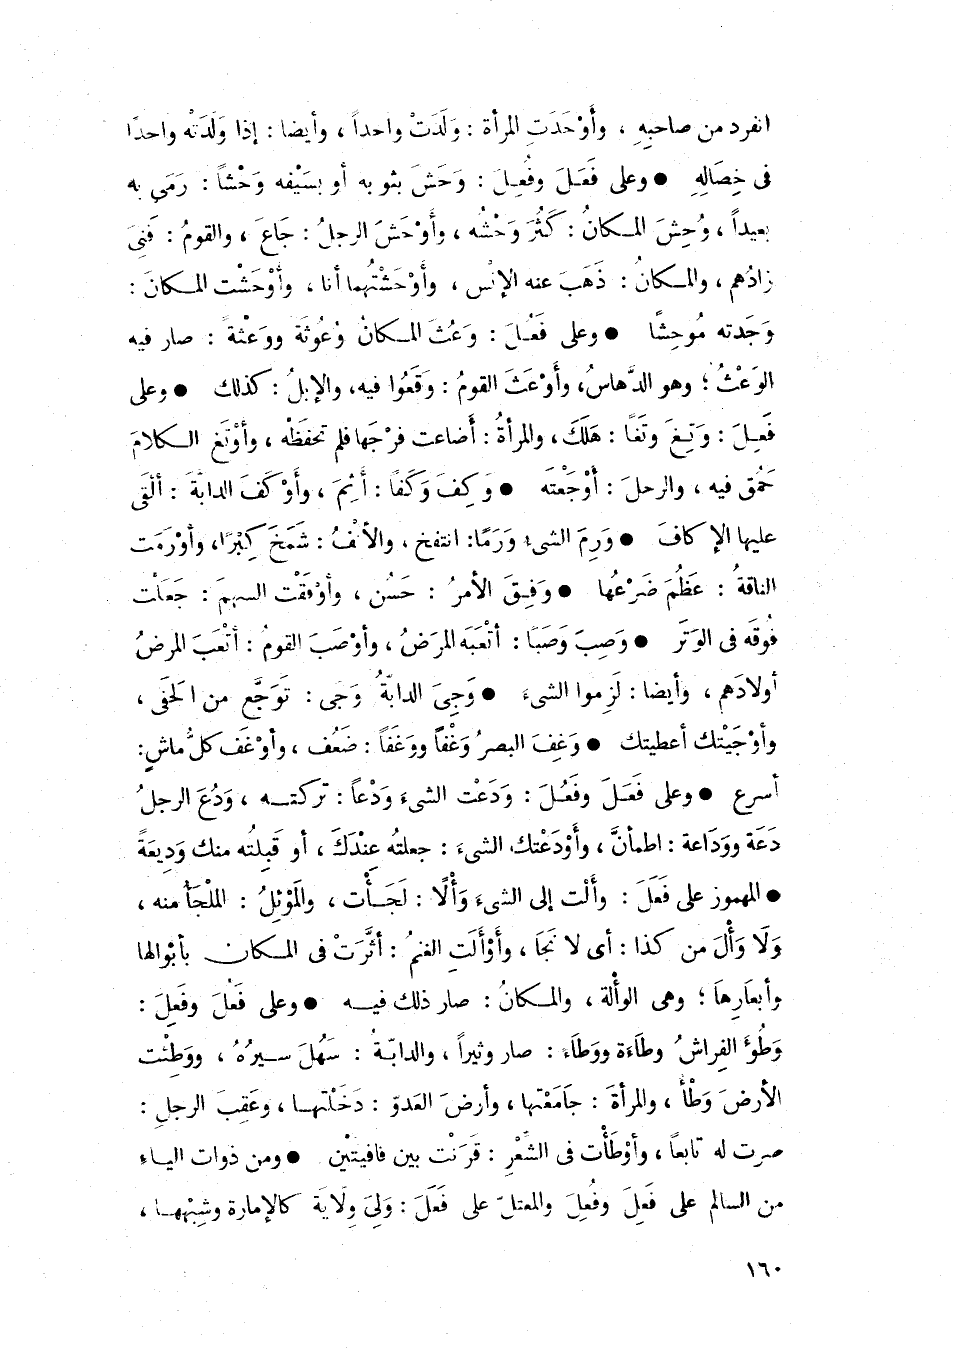 انفرد من صاحبِهِ ، وأَوْحَدَتِ المرأة : وَلَدَتْ واحداً ، وأيضا : إذا وَلَدَتْه واحدًا
فى خِصَالِهِ ● وعلى فَعَلَ وفُعِلَ : وَحَشَ بثوبه أو بسَيْفه وَحْشاً : رَمَى به
بعيداً ، وُحِشَ المـكانُ : كَثُرَ وَحْشُه ، وأَوْحَشَ الرجلُ : جَاعَ ، والقومُ : فَنِىَ
زادُهم ، والمـكانُ : ذَهَبَ عنه الإنْس ، وأَوْحَشْتُهما أنا ، وأَوْحَشْت المـكانَ :
وَجَدته مُوحِشًا ● وعلى فَعُلَ : وَعُثَ المـكانُ وُعُوثَة ووَعْثَة : صار فيه
الوَعْثُ ؛ وهو الدَّهاسُ، وأَوْعَثَ القومُ : وَقَعُوا فيه، والإبلُ : كذلك ● وعلى
فَعِـلَ : وَتِـغَ وتَغًا : هَلَكَ، والمرأةُ : أَضاعت فرْجَها فلم تحفَظْه ، وأَوْتَغ الـكلامَ
حَمُق فيه ، والرجلَ : أَوْجَعْتَه ● وَكِفَ وَكَفًا : أَثِمَ ، وأَوْكَفَ الدابَّةَ : ألْقَى
عليها الإكافَ ● وَرِمَ الشىءُ وَرَمًا : انتفخ ، والأنْفُ : شَمَخَ كِبْرًا، وأوْرَمَت
الناقةُ : عَظُمَ ضَرْعُها ● وَفِـقَ الأمرُ : حَسُن ، وأَوْفَقْت السهمَ : جَعَلْت
فُوقَه فى الوَتَر ● وَصِبَ وَصَبًا : أتْعَبَه المرَضُ ، وأَوْصَبَ القومُ : أتْعَبَ المرضُ
أولادَهم ، وأيضا : لَزِموا الشىءَ ● وَجِىَ الدابّةُ وَجَى : تَوَجَّع من الحَفَى ،
وأوْجَيْتك أعطيتك ● وَغِفَ البصرُ وَغْفًا ووَغَفًا : ضَعُف ، وأوْغَف كلُّ ماشٍ :
أسرع ● وعلى فَعَـلَ وفَعُـلَ : وَدَعْت الشىءَ وَدْعاً : تركتـه ، وَدُعَ الرجلُ
دَعَة ووَدَاعة : اطمأنَّ ، وأَوْدَعْتك الشىءَ : جعلتُه عِنْدَكَ ، أو قَبِلتُه منك وَدِيعَةً
● المهموز على فَعَلَ : وأَلْت إلى الشىءَ وَأْلًا : لَجَـأْت ، والمَوْئِلُ : المَلْجَأُ منه ،
وَلَا وَأَلَ من كذا : أى لا نَجَا ، وأَوْأَلَتِ الغنمُ : أثَّرَتْ فى المـكان بأبْوالها
وأبعارِها ؛ وهى الوَألَة ، والمـكانُ : صار ذلك فيـه ● وعلى فَعُلَ وفَعِلَ :
وَطُوءَ الفِراشُ وطَاءَة ووَطَاءَ : صار وثيراً ، والدابّـةُ : سَهُلَ سـيرُهُ ، ووَطِئْت
الأرضَ وَطْأً ، والمرأةَ : جامَعْتها ، وأرضَ العَدوّ : دَخَلْتهـا ، وعَقِبَ الرجلِ :
صرت له تابعاً ، وأوْطَأْت فى الشِّعْرِ : قَرَنْت بين قافيتَيْن ● ومن ذوات اليـاءِ
من السالم على فَعِلَ وفُعِلَ والمعتلّ على فَعَلَ : وَلِىَ وِلَايَة كالإمارة وشِبْهِهـا ،
١٦٠